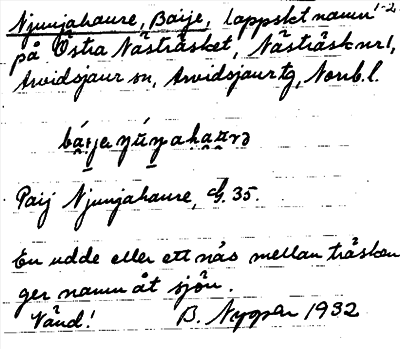 Njunjahaure, Baije, lappskt namn 1-2
på Östra Nästräsket, Nästräsk nr 1,
Arvidsjaur sn, Arvidsjaur tg, Norrb. l.
Paij Njunjahaure, 35.
En udde eller ett näs mellan träsken
ger namn åt sjön.
Vänd! B. Nyman 1932